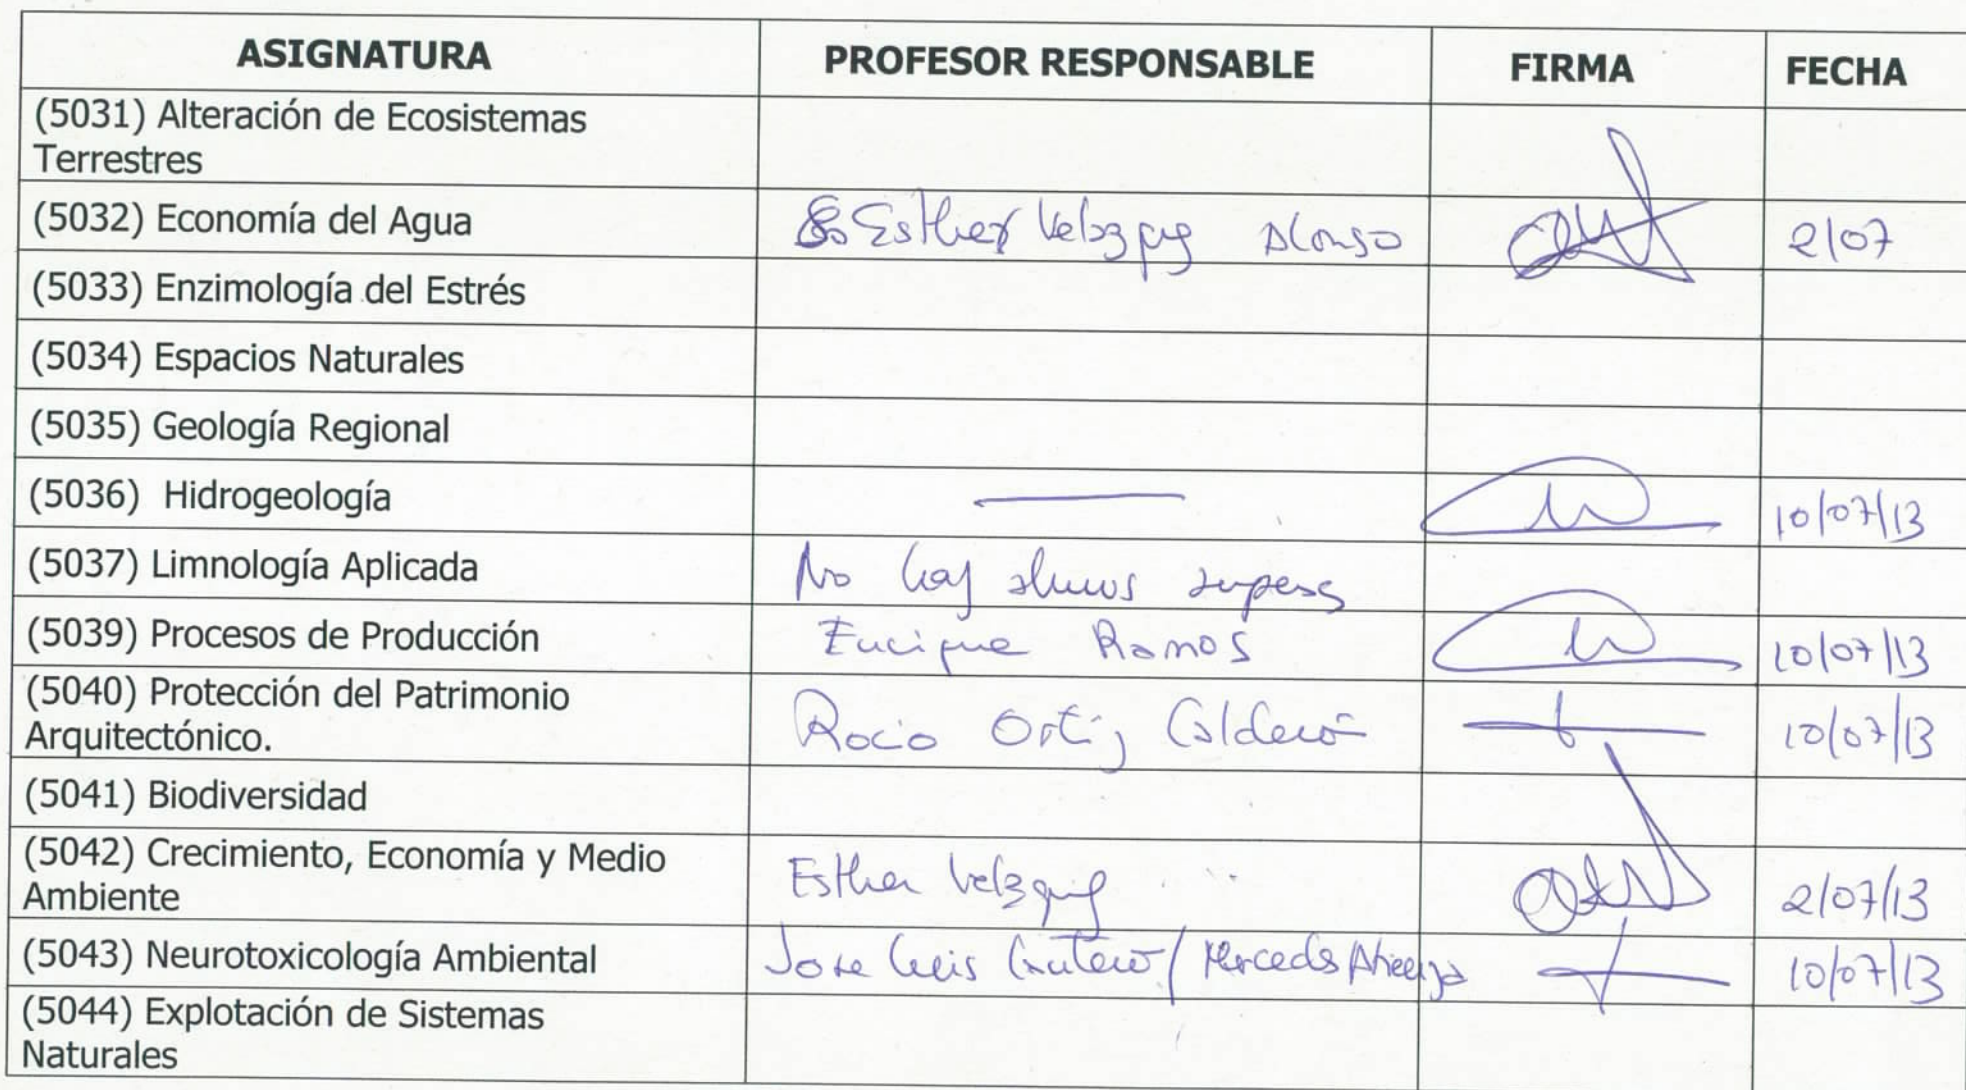 ASIGNATURA PROFESOR RESPONSABLE FIRMA FECHA
(5031) Alteración de Ecosistemas
Terrestres
(5032) Economía del Agua Esther Velazquez Alonso 2/07
(5033) Enzimología del Estrés
(5034) Espacios Naturales
(5035) Geología Regional
(5036) Hidrogeología 10/07/13
(5037) Limnología Aplicada No hay alumnos
(5039) Procesos de Producción Enrique Ramos 10/07/13
(5040) Protección del Patrimonio
Arquitectónico. Rocio Ortiz Calderón 10/07/13
(5041) Biodiversidad
(5042) Crecimiento, Economía y Medio
Ambiente Esther Velazquez 2/07/13
(5043) Neurotoxicología Ambiental Jose Luis / Mercedes Atienza 10/07/13
(5044) Explotación de Sistemas
Naturales